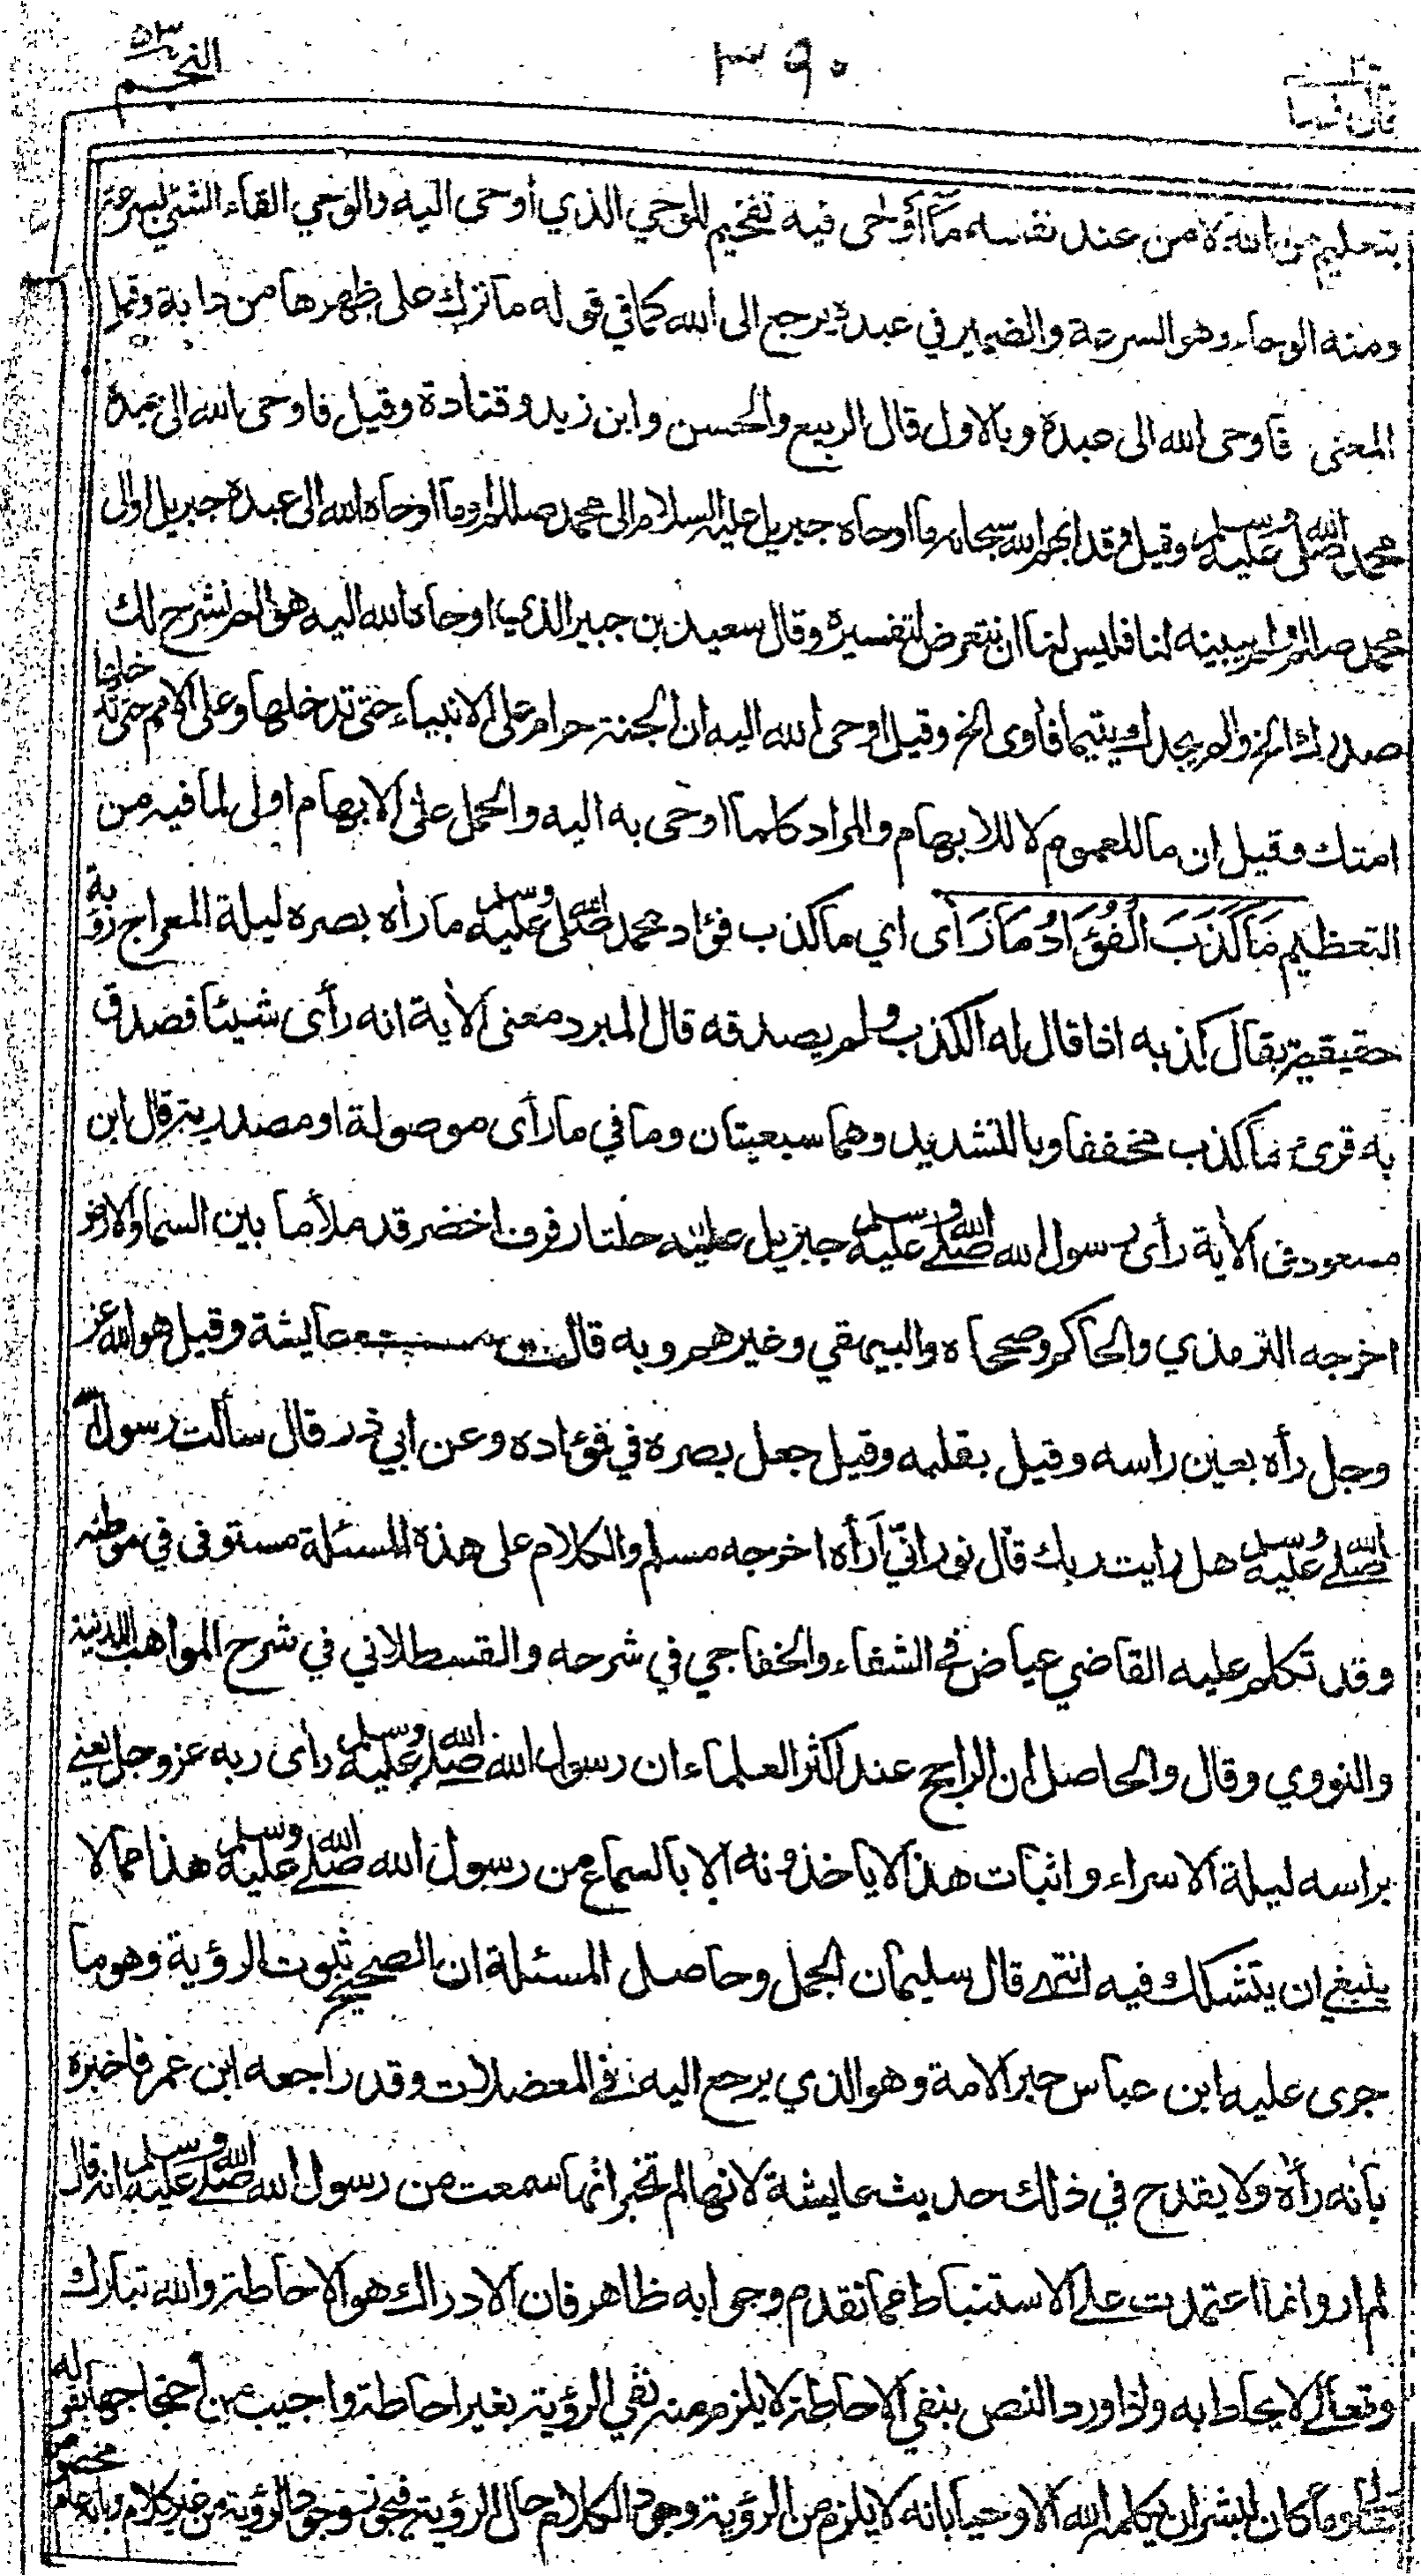 النجم ٥٣
٣٩٠
قال فما
بتعليم من الله لا من عند نفسه مَا أَوْحَى فيه تفخيم للوحي الذي أوحى اليه والوحي القاء الشئ بسرعة
ومنه الوحاء وهو السرعة والضمير في عبده يرجع الى الله كما في قوله ما ترك على ظهرها من دابة وقيل
المعنى فاوحى الله الى عبده وبالاول قال الربيع والحسن وابن زيد وقتادة وقيل فاوحى الله الى عبده
محمد صلى الله عليه وسلم وقيل وقد ابهم الله سبحانه ما اوحاه جبريل عليه السلام الى محمد صللم وما اوحاه الله الى عبده جبريل او الى
محمد صللم ولم يبينه لنا فليس لنا ان نتعرض لتفسيره وقال سعيد بن جبير الذي اوحاه الله اليه هو الم نشرح لك
صدرك الخ والم يجدك يتيما فأوى الخ وقيل اوحى الله اليه ان الجنة حرام على الانبياء حتى تدخلها وعلى الامم حتى تدخلها
امتك وقيل ان ما للعموم لا للابهام والمراد كلما اوحى به اليه والحمل على الابهام اولى لما فيه من
التعظيم مَا كَذَبَ الْفُؤَادُ مَا رَأَى اي ما كذب فؤاد محمد صلى الله عليه وسلم ما رأه بصره ليلة المعراج رؤية
حقيقية يقال كذبه اذا قال له الكذب ولم يصدقه قال المبرد معنى الأية انه رأى شيئا فصدق
به قرئ ما كذب مخففا وبالتشديد وهما سبعيتان وما في ما رأى موصولة او مصدرية قال ابن
مسعود في الأية رأى رسول الله صلى الله عليه وسلم جبريل عليه حلتا رفرف اخضر قد ملأ ما بين السماء والارض
اخرجه الترمذي والحاكم وصححاه والبيهقي وغيرهم وبه قالت عايشة وقيل هو الله عز
وجل رأه بعين راسه وقيل بقلبه وقيل جعل بصره في فؤاده وعن ابي ذر قال سألت رسول الله
صلى الله عليه وسلم هل رايت ربك قال نور انّي اَرأه اخرجه مسلم والكلام على هذة المسئلة مستوفى في موطنه
وقد تكلم عليه القاضي عياض في الشفاء والخفاجي في شرحه والقسطلاني في شرح المواهب اللدنية
والنووي وقال والحاصل ان الراجح عند اكثر العلماء ان رسول الله صلى الله عليه وسلم رأى ربه عز وجل بعيني
براسه ليلة الاسراء واثبات هذا لا ياخذونه الا بالسماع من رسول الله صلى الله عليه وسلم هذا مما لا
ينبغي ان يتشكك فيه انتهى قال سليمان الجمل وحاصل المسئلة ان الصحيح ثبوت الرؤية وهو ما
جرى عليه ابن عباس حبر الامة وهو الذي يرجع اليه في المعضلات وقد راجعه ابن عمر فاخبره
بأنه رأه ولا يقدح في ذلك حديث عايشة لانها لم تخبر انها سمعت من رسول الله صلى الله عليه وسلم انه قال
لم ار وانما اعتمدت على الاستنباط مما تقدم وجوابه ظاهر فان الادراك هو الاحاطة والله تبارك
وتعالى لا يحاط به واذا ورد النص بنفي الاحاطة لا يلزم منه نفي الرؤية بغير احاطة واجيب عن احتجاجها بقوله
تعالى وما كان لبشر ان يكلمه الله الا وحيا بانه لا يلزم من الرؤية وجود الكلام حال الرؤية فيجوز وجود الرؤية من غير كلام وبانه عام مخصوص